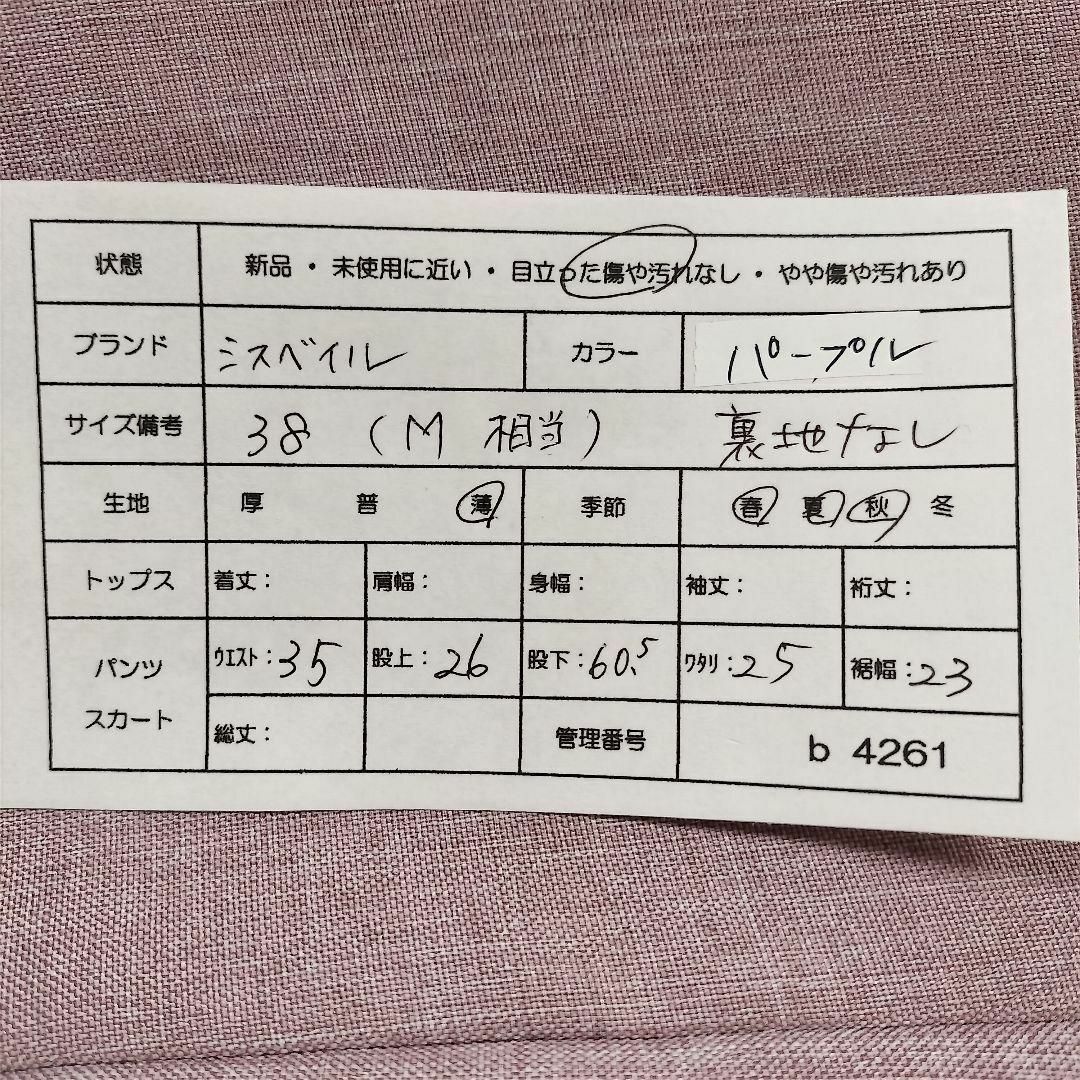 状態 新品・未使用に近い・目立った傷や汚れなし・やや傷や汚れあり
ブランド ミスベイル カラー パープル
サイズ備考 38 (M 相当) 裏地なし
生地 厚 普 薄 季節 春 夏 秋 冬
トップス 着丈: 肩幅: 身幅: 袖丈: 裄丈:
パンツ ウエスト:35 股上:26 股下:60.5 ワタリ:25 裾幅:23
スカート 総丈: 管理番号 b 4261